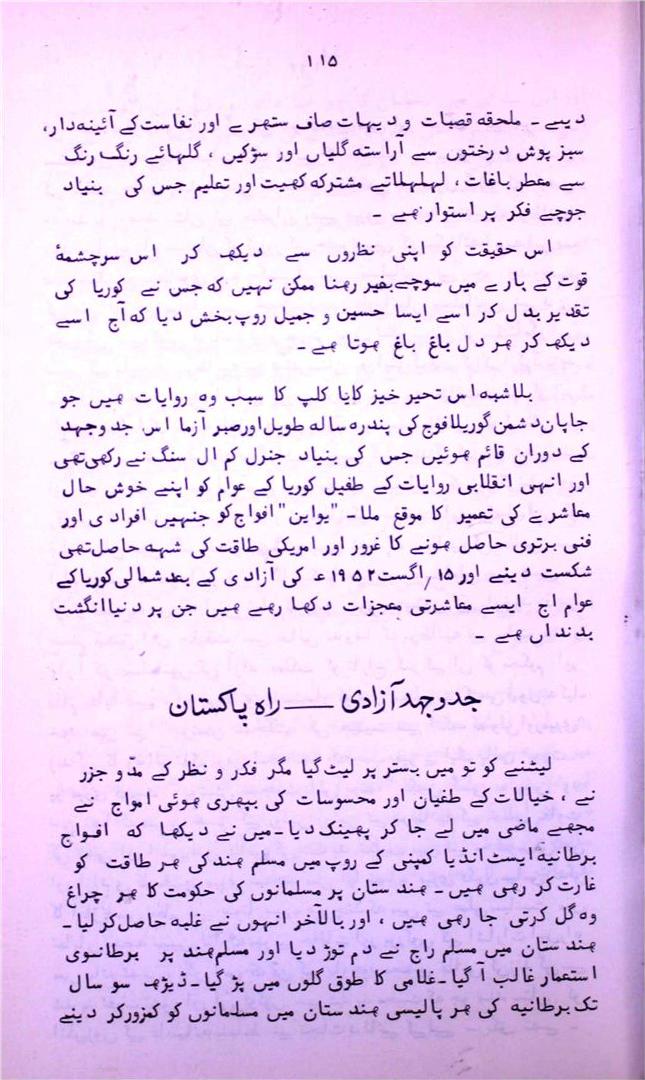 ۱۱۵
دیںے ۔ ملحقہ قصبات و دیہات صاف ستھرے اور نفاست کے آئینہ دار،
سبز پوش درختوں سے آراستہ گلیاں اور سڑکیں ، گلہائے رنگ رنگ
سے معطر باغات ، لہلہاتے مشترکہ کھیت اور تعلیم جس کی بنیاد
جوچے فکر پر استوار ہے ۔
اس حقیقت کو اپنی نظروں سے دیکھ کر اس سرچشمۂ
قوت کے بارے میں سوچے بغیر رہنا ممکن نہیں کہ جس نے کوریا کی
تقدیر بدل کر اسے ایسا حسین و جمیل روپ بخش دیا کہ آج اسے
دیکھ کر ہر دل باغ باغ ہوتا ہے ۔
بلاشبہ اس تحیر خیز کایا کلپ کا سبب وہ روایات ہیں جو
جاپان دشمن گوریلا فوج کی پندرہ سالہ طویل اور صبر آزما اس جدوجہد
کے دوران قائم ہوئیں جس کی بنیاد جنرل کم ال سنگ نے رکھی تھی
اور انہی انقلابی روایات کے طفیل کوریا کے عوام کو اپنے خوش حال
معاشرے کی تعمیر کا موقع ملا ۔ "یو این" افواج کو جنہیں افرادی اور
فنی برتری حاصل ہونے کا غرور اور امریکی طاقت کی شہہ حاصل تھی
شکست دینے اور ۱۵/ اگست ۱۹۵۲ ء کی آزادی کے بعد شمالی کوریا کے
عوام آج ایسے معاشرتی معجزات دکھا رہے ہیں جن پر دنیا انگشت
بدنداں ہے ۔
جدوجہد آزادی —— راہ پاکستان
لیٹنے کو تو میں بستر پر لیٹ گیا مگر فکر و نظر کے مدّ و جزر
نے ، خیالات کے طغیان اور محسوسات کی بپھری ہوئی امواج نے
مجھے ماضی میں لے جا کر پھینک دیا ۔ میں نے دیکھا کہ افواج
برطانیہ ایسٹ انڈیا کمپنی کے روپ میں مسلم ہند کی ہر طاقت کو
غارت کر رہی ہیں ۔ ہندستان پر مسلمانوں کی حکومت کا ہر چراغ
وہ گل کرتی جا رہی ہیں ، اور بالآخر انہوں نے غلبہ حاصل کر لیا ۔
ہندستان میں مسلم راج نے دم توڑ دیا اور مسلم ہند پر برطانوی
استعمار غالب آ گیا ۔ غلامی کا طوق گلوں میں پڑ گیا ۔ ڈیڑھ سو سال
تک برطانیہ کی ہر پالیسی ہندستان میں مسلمانوں کو کمزور کر دینے